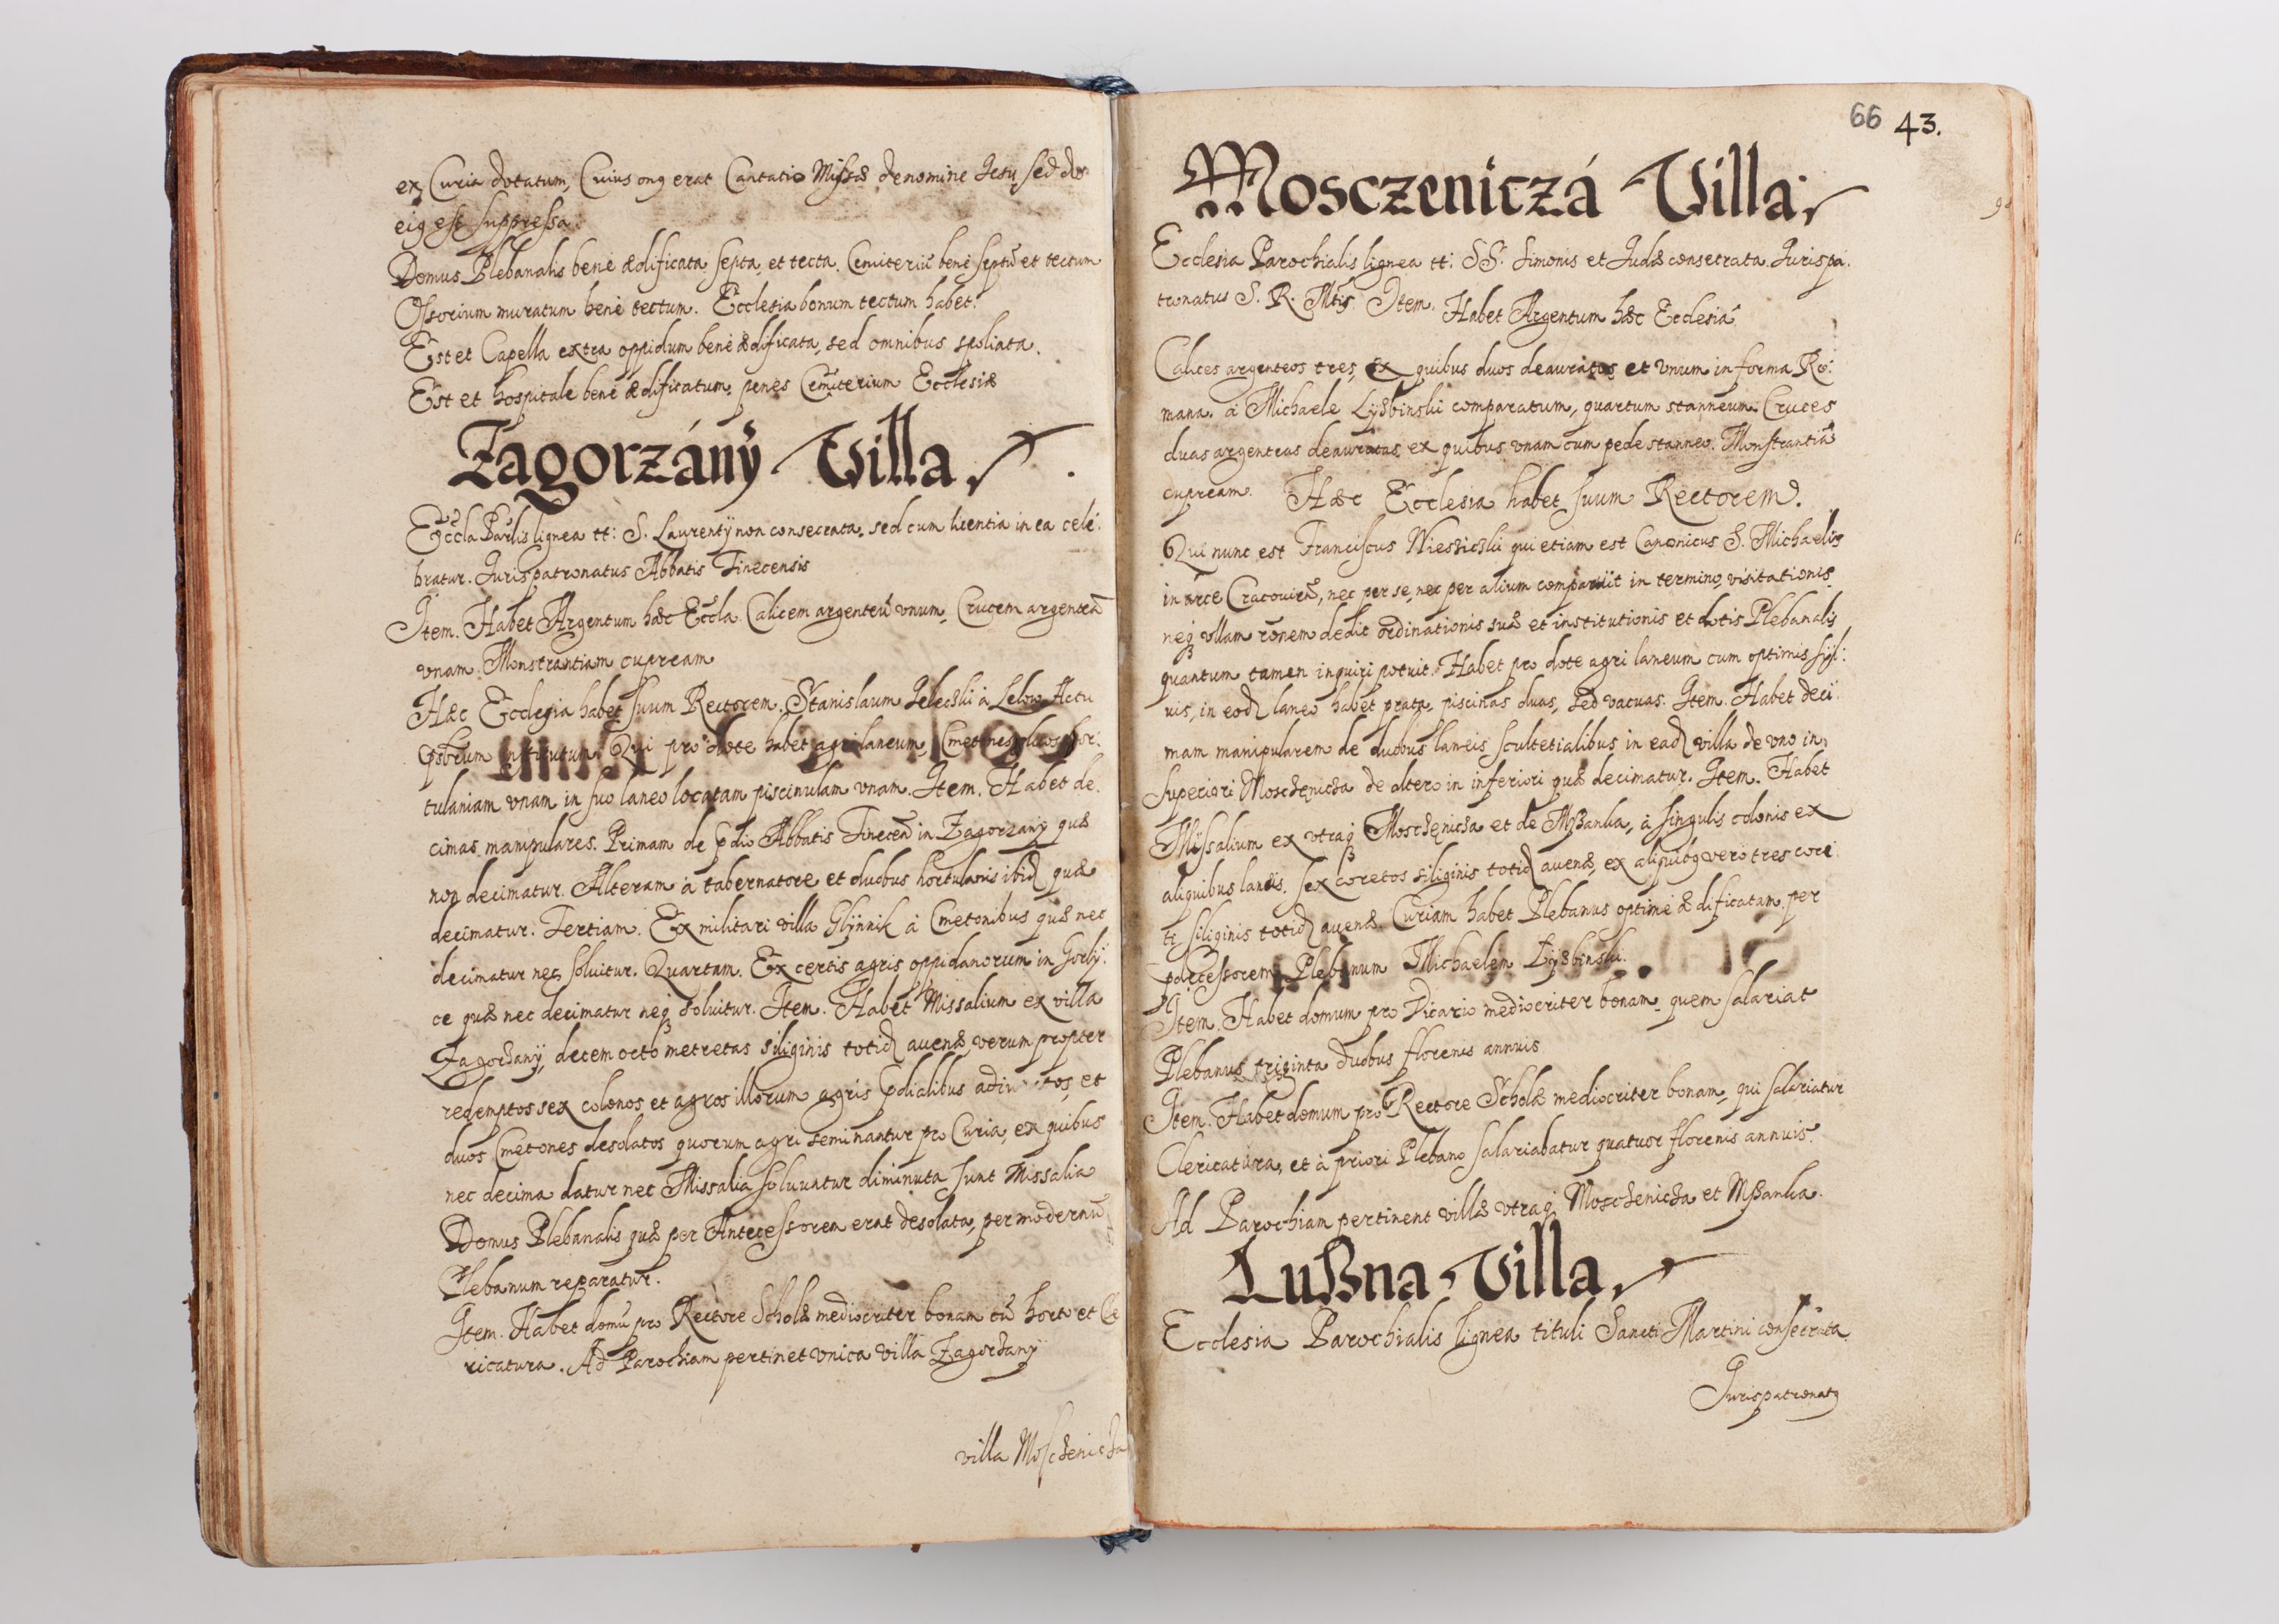 ex Curia dotatum, Cuius onꝯ erat Cantatio Missæ de nomine Jesu, sed de
eiꝯ est suppressa.
Domus Plebanalis benè ædificata septa, et tecta. Cemiteriũ benè septũ et tectum
Ossorium muratum benè tectum. Ecclesia bonum tectum habet.
Est et Capella extra oppidum benè ædificata, sed omnibus spoliata.
Est et hospitale benè ædificatum, penes Cemiterium Ecclesiæ
Zagorzány Villa
Eccla Parlis lignea tt: S. Laurentÿ non consecrata, sed cum licentia in ea cele:
bratur. Jurispatronatus Abbatis Tinecensis
Item. Habet Argentum hæc Eccla. Calicem argenteũ vnum, Crucem argenteã
vnam. Monstrantiam cupream
Hæc Ecclesia habet suum Rectorem. Stanislaum à Lelow Actu
institutum. Qui pro dote habet agri laneum, Cmetones duos, hor:
tulaniam vnam in suo laneo locatam piscinulam vnam. Item. Habet de:
cimas manipulares. Primam de Abbatis Tinecen̄ in Zagorzany quæ
non decimatur. Alteram à tabernatore et duobus hortulanis ibid quæ
decimatur. Tertiam. Ex militari villa Glynnik à Cmetonibus quæ nec
decimatur nec soluitur. Quartam. Ex certis agris oppidanorum in Gorly:
ce quæ nec decimatur neqꝫ soluitur. Item. Habet Missalium ex villa
Zagorzanÿ, decem octo metretas siliginis totid auenæ, verum propter
redemptos sex colonos et agros illorum agris et
duos Cmetones desolatos quorum agri seminantur pro Curia, ex quibus
nec decima datur nec Missalia soluuntur diminuta sunt Missalia
Domus Plebanalis quæ per Antecessorem erat desolata, per modernũ
Plebanum reparatur.
Item. Habet domũ pro Rectore Scholæ mediocriter bonam cũ horto et Cle
ricatura. Ad Parochiam pertinet vnica villa Zagorzany
villa Moscżenicża
66 43.
Mosczeniczá Villa
Ecclesia Parochialis lignea tt: SS. Simonis et Judæ consecrata. Jurispa:
tronatus S. R. Mtis. Item. Habet Argentum hæc Ecclesia
Calices argenteos tres, ex quibus duos deauratos et vnum in forma Ro:
mana. à Michaele comparatum, quartum stanneum. Cruces
duas argenteas deauratas ex quibus vnam cum pede stanneo. Monstrantiã
cupream. Hæc Ecclesia habet suum Rectorem.
Qui nunc est Franciscus qui etiam est Canonicus S. Michaelis
in arce Cracouien̄, nec per se, nec per alium comparuit in termino visitationis
neqꝫ vllam rõnem dedit ordinationis suæ et institutionis et dotis Plebanalis
quantum tamen inquiri potuit. Habet pro dote agri laneum cum optimis syl:
uis, in eod laneo habet prata, piscinas duas, sed vacuas. Item. Habet deci:
mam manipularem de duobus laneis scultetialibus in ead villa de vno in
superiori Moscżenicża de altero in inferiori quæ decimatur. Item. Habet
Missalium ex vtraqꝫ Moscżenicża et de Mßanka, à singulis colonis ex
aliquibus laneis, sex coretos siliginis totid auenæ, ex aliquibꝯ vero tres core:
tꝭ siliginis totid auenæ. Curiam habet Plebanus optimè ædificatam. per
pdecessorem Plebanum Michaelem
Item. Habet domum pro Vicario mediocriter bonam, quem salariat
Plebanus triginta duobus florenis annuis
Item. Habet domum pro Rectore Scholæ mediocriter bonam, qui salariatur
Clericatura, et à priori Plebano salariabatur quatuor florenis annuis.
Ad Parochiam pertinent villæ vtraqꝫ Moscżenicża et Mßanka.
Lußna Villa
Ecclesia Parochialis lignea tituli Sancti Martini consecrata
Jurispatronatꝯ